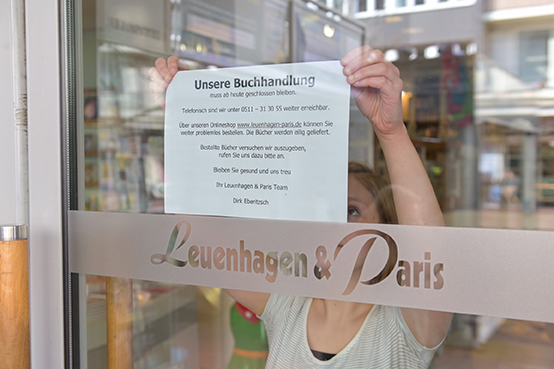 Unsere Buchhandlung
muss ab heute geschlossen bleiben.
Telefonisch sind wir unter 0511 – 31 30 55 weiter erreichbar.
Über unseren Onlineshop www.leuenhagen-paris.de können Sie
weiter problemlos bestellen. Die Bücher werden eilig geliefert.
Bestellte Bücher versuchen wir auszugeben,
rufen Sie uns dazu bitte an.
Bleiben Sie gesund und uns treu
Ihr Leuenhagen & Paris Team
Dirk Eberitzsch
Leuenhagen & Paris